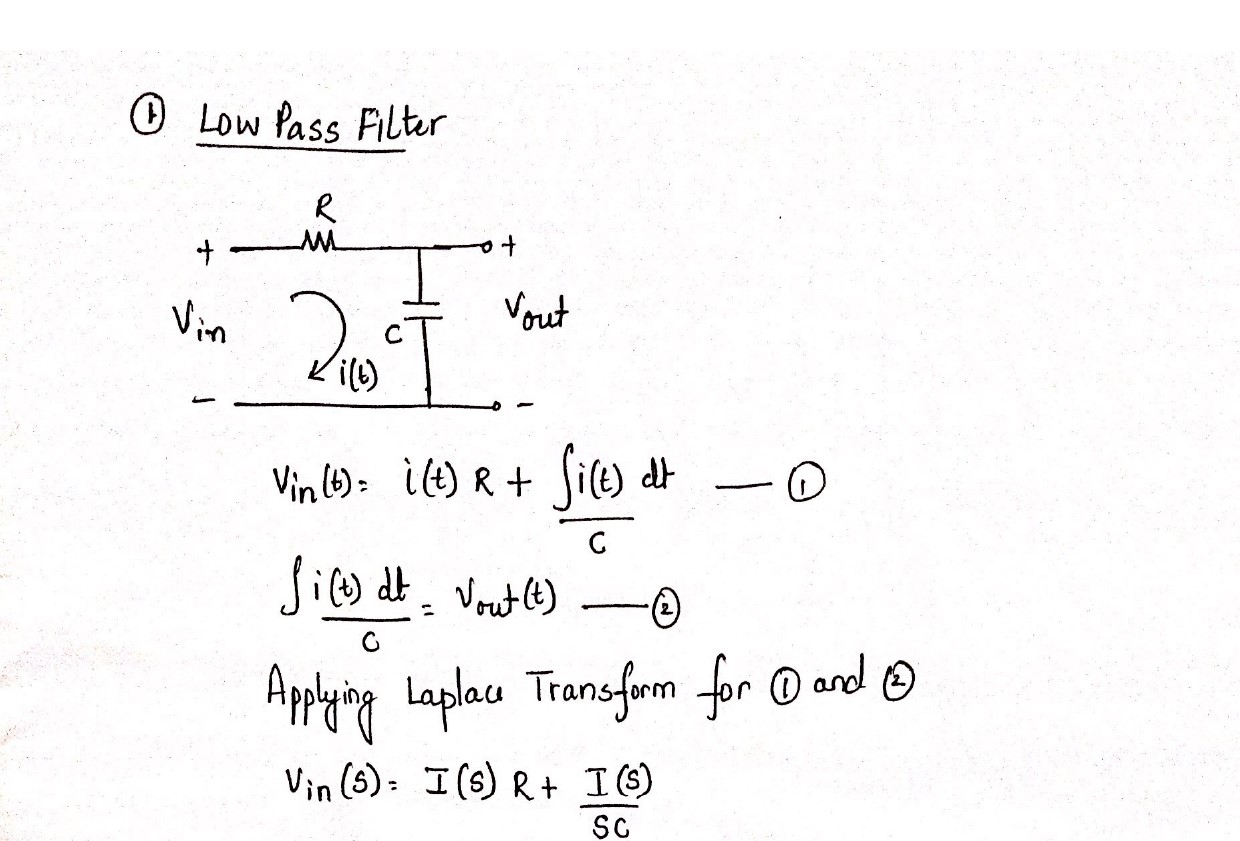 ① Low Pass Filter
R
+ +
Vin C Vout
i(t)
- -
Vin(t) = i(t) R + ∫i(t) dt / C — ①
∫i(t) dt / C = Vout(t) — ②
Applying Laplace Transform for ① and ②
Vin(S) = I(S) R + I(S) / SC